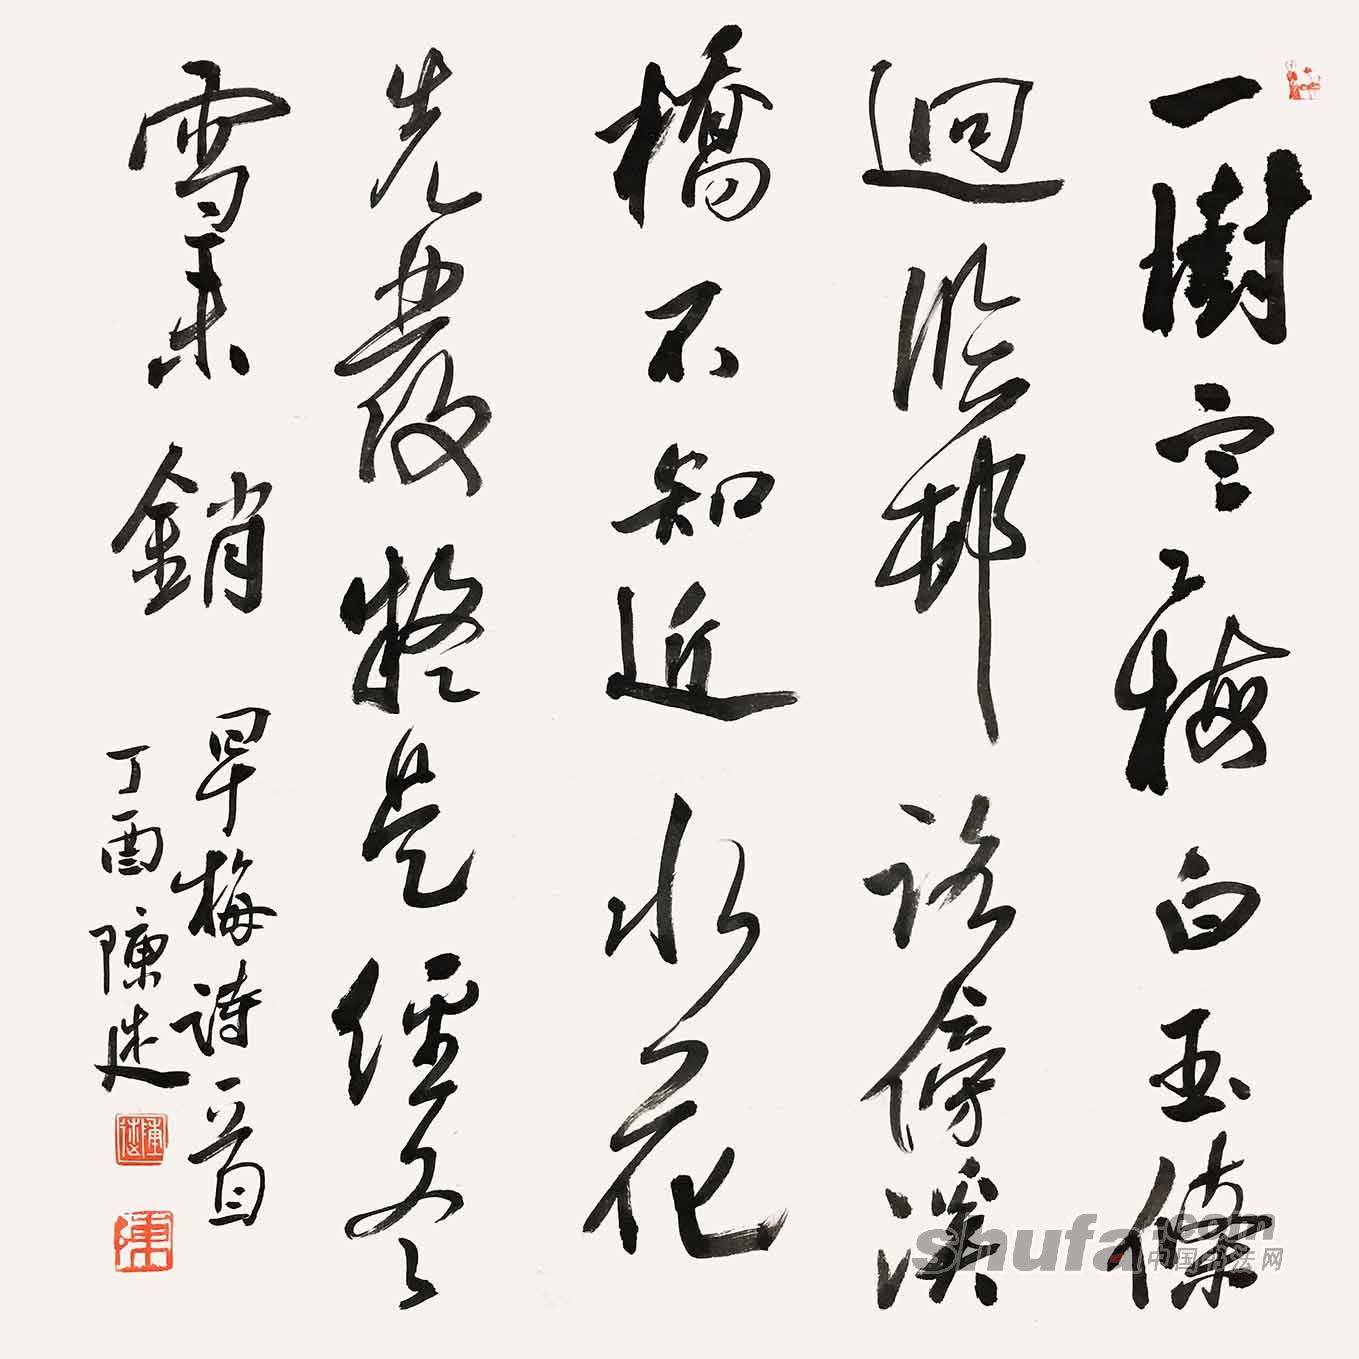 一樹寒梅白玉條
逈臨邨路傍溪
橋不知近水花
先發疑是經冬
雪未銷
早梅詩一首
丁酉陳
陳
shufa.com
中国书法网